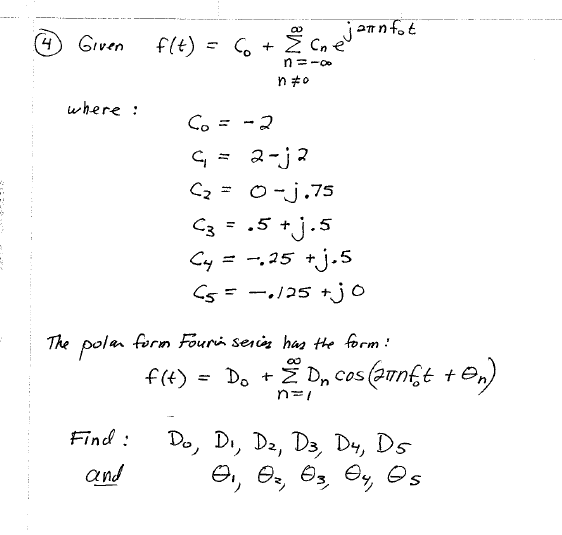 ④ Given f(t) = C₀ + ∞Σn=-∞ n≠0 Cₙ e^j2πnf₀t
where :
C₀ = -2
C₁ = 2-j2
C₂ = 0-j.75
C₃ = .5 + j.5
C₄ = -.25 + j.5
C₅ = -.125 + j0
The polar form Fourier series has the form :
f(t) = D₀ + ∞Σn=1 Dₙ cos(2πnf₀t + θₙ)
Find : D₀, D₁, D₂, D₃, D₄, D₅
and θ₁, θ₂, θ₃, θ₄, θ₅